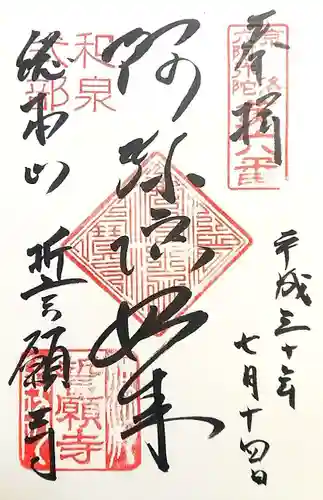 奉拝
平成三十年
七月十四日
阿弥陀如来
総本山 誓願寺
和泉
式部
誓願寺